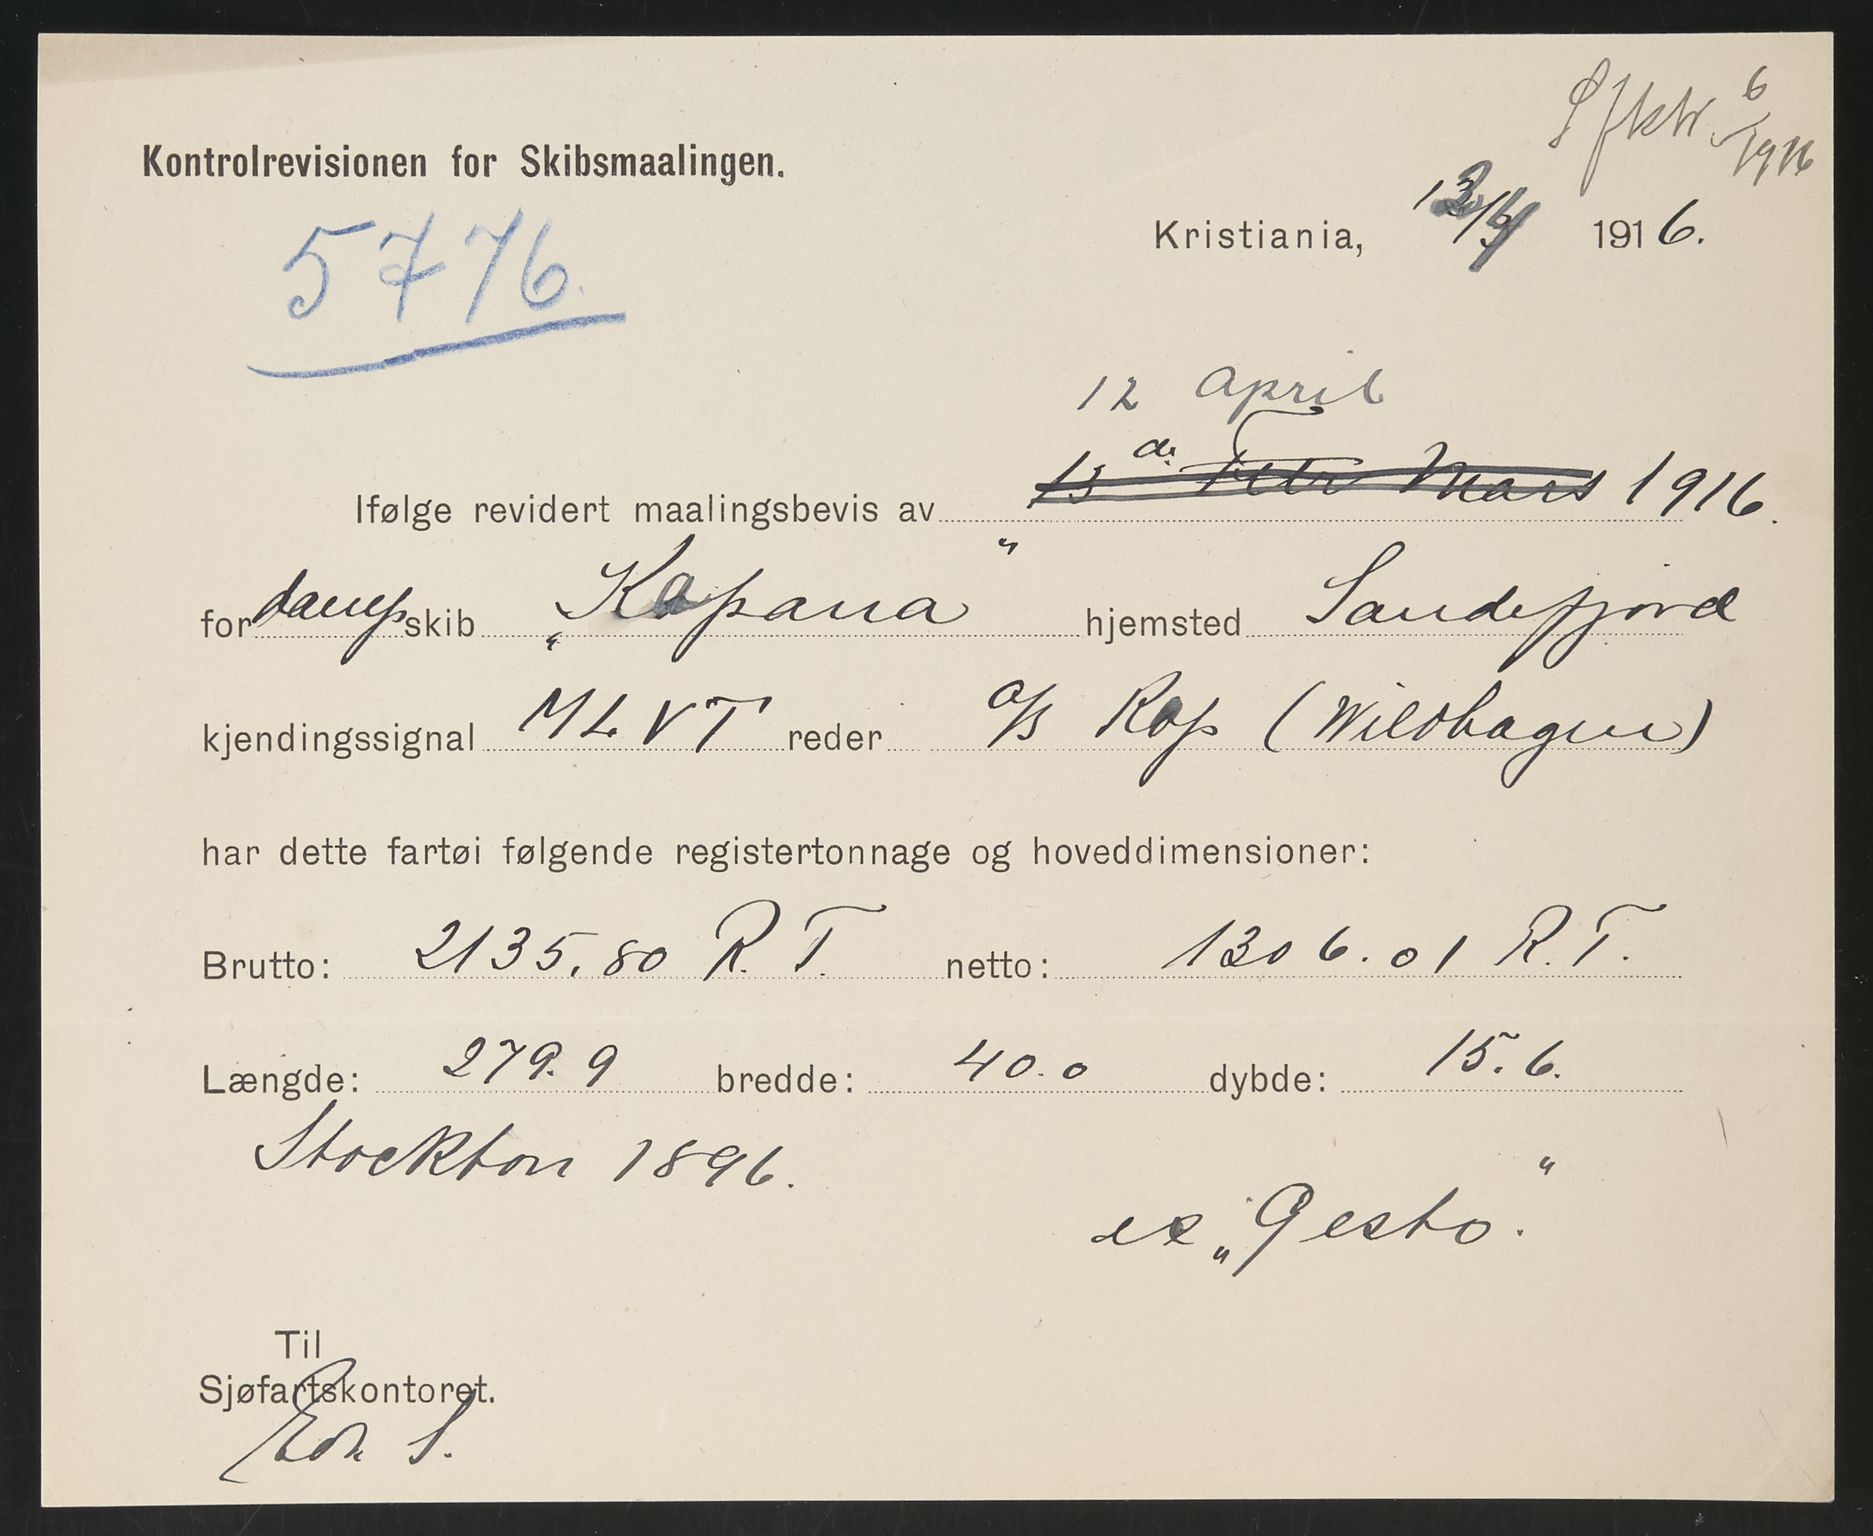 Sfktr. 6/1916
Kontrolrevisionen for Skibsmaalingen.
Kristiania, 13/4 1916.
5776.
12 april
Ifølge revidert maalingsbevis av 13 de Febr Mars 1916.
for dampskib „Kapana" hjemsted Sandefjord
kjendingssignal MLVT reder a/s Kap (Wildhagen)
har dette fartøi følgende registertonnage og hoveddimensioner:
Brutto: 2135,80 R. T. netto: 1306.01 R. T.
Længde: 279.9 bredde: 40.0 dybde: 15.6.
Stockton 1896.
ex „Gesto".
Til
Sjøfartskontoret.